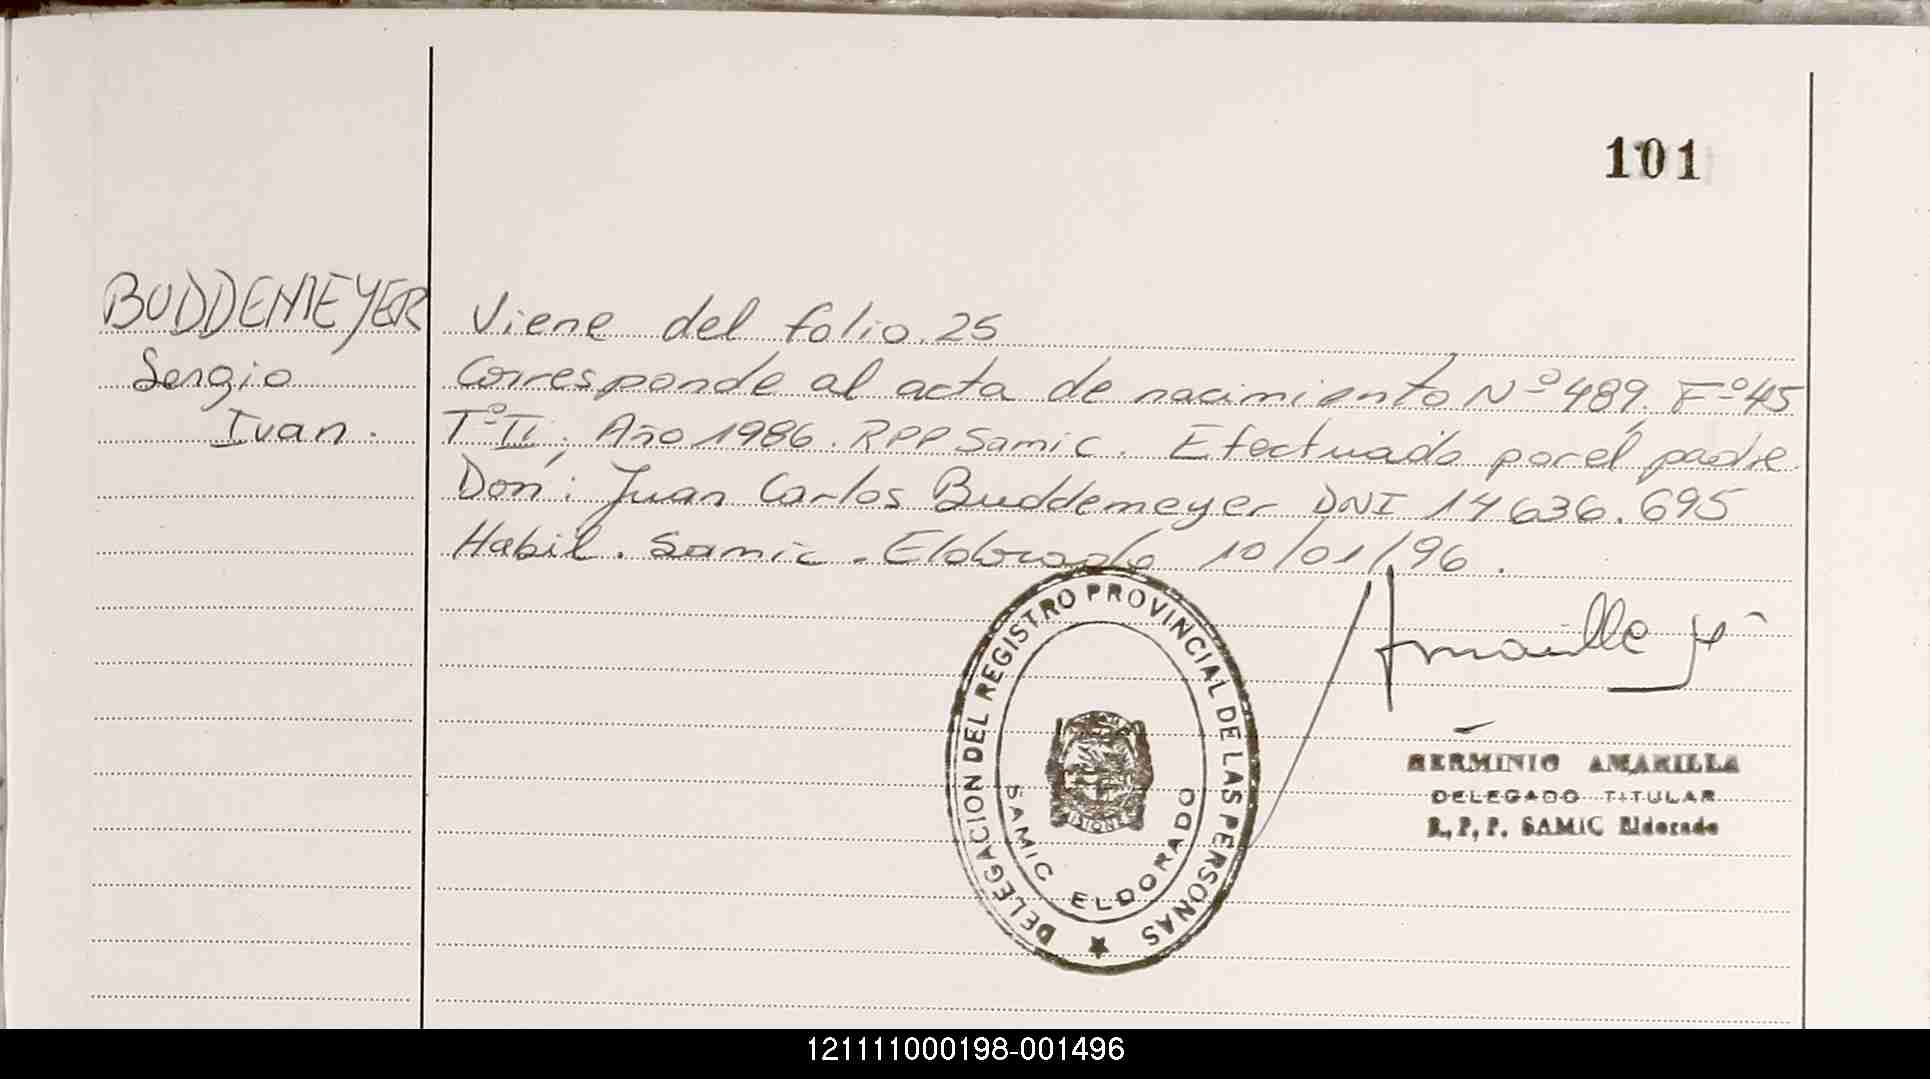 101
BUDDEMEYER
Sergio
Ivan.
Viene del folio 25
Corresponde al acta de nacimiento Nº 489, Fº 45
Tº II, Año 1986. RPP Samic. Efectuado por el padre
Don: Juan Carlos Buddemeyer DNI 14 636.695
Habil. Samic - Eldorado 10/01/96.
DELEGACION DEL REGISTRO PROVINCIAL DE LAS PERSONAS
SAMIC ELDORADO
HERMINIO AMARILLA
DELEGADO TITULAR
R.P.P. SAMIC Eldorado
121111000198-001496